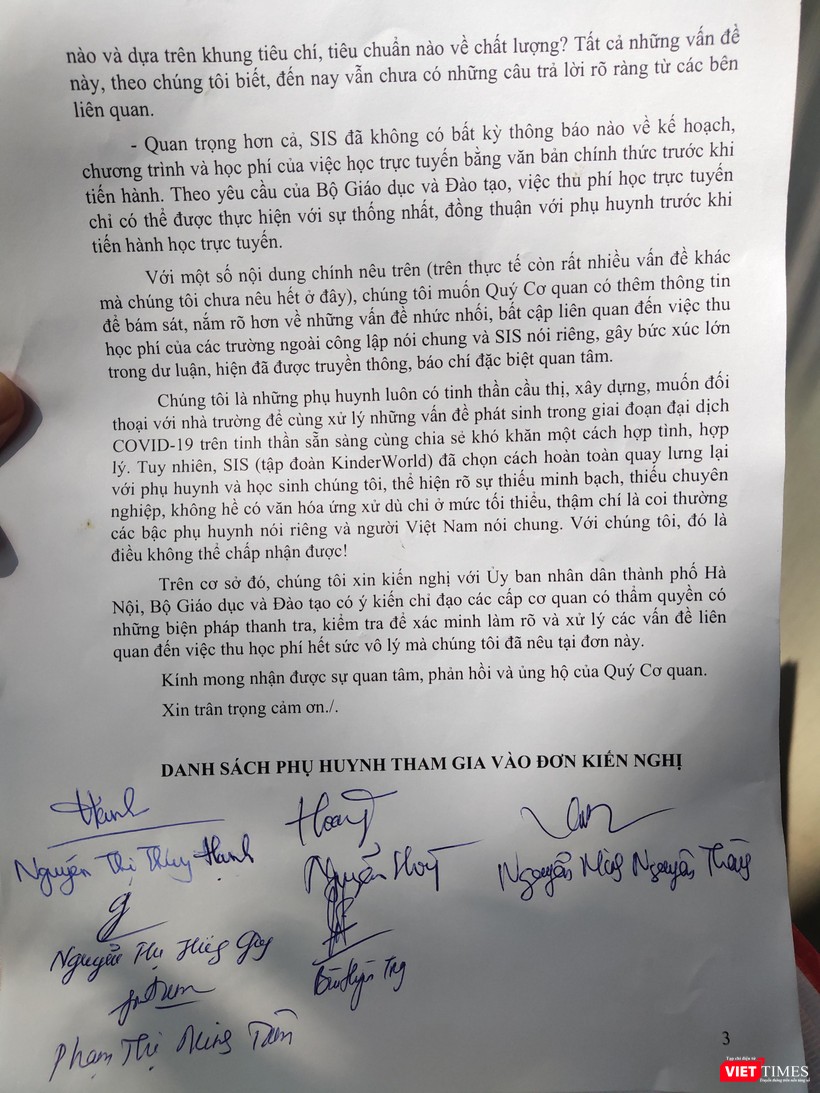 nào và dựa trên khung tiêu chí, tiêu chuẩn nào về chất lượng? Tất cả những vấn đề
này, theo chúng tôi biết, đến nay vẫn chưa có những câu trả lời rõ ràng từ các bên
liên quan.
- Quan trọng hơn cả, SIS đã không có bất kỳ thông báo nào về kế hoạch,
chương trình và học phí của việc học trực tuyến bằng văn bản chính thức trước khi
tiến hành. Theo yêu cầu của Bộ Giáo dục và Đào tạo, việc thu phí học trực tuyến
chỉ có thể được thực hiện với sự thống nhất, đồng thuận với phụ huynh trước khi
tiến hành học trực tuyến.
Với một số nội dung chính nêu trên (trên thực tế còn rất nhiều vấn đề khác
mà chúng tôi chưa nêu hết ở đây), chúng tôi muốn Quý Cơ quan có thêm thông tin
để bám sát, nắm rõ hơn về những vấn đề nhức nhối, bất cập liên quan đến việc thu
học phí của các trường ngoài công lập nói chung và SIS nói riêng, gây bức xúc lớn
trong dư luận, hiện đã được truyền thông, báo chí đặc biệt quan tâm.
Chúng tôi là những phụ huynh luôn có tinh thần cầu thị, xây dựng, muốn đối
thoại với nhà trường để cùng xử lý những vấn đề phát sinh trong giai đoạn đại dịch
COVID-19 trên tinh thần sẵn sàng cùng chia sẻ khó khăn một cách hợp tình, hợp
lý. Tuy nhiên, SIS (tập đoàn KinderWorld) đã chọn cách hoàn toàn quay lưng lại
với phụ huynh và học sinh chúng tôi, thể hiện rõ sự thiếu minh bạch, thiếu chuyên
nghiệp, không hề có văn hóa ứng xử dù chỉ ở mức tối thiểu, thậm chí là coi thường
các bậc phụ huynh nói riêng và người Việt Nam nói chung. Với chúng tôi, đó là
điều không thể chấp nhận được!
Trên cơ sở đó, chúng tôi xin kiến nghị với Ủy ban nhân dân thành phố Hà
Nội, Bộ Giáo dục và Đào tạo có ý kiến chỉ đạo các cấp cơ quan có thẩm quyền có
những biện pháp thanh tra, kiểm tra để xác minh làm rõ và xử lý các vấn đề liên
quan đến việc thu học phí hết sức vô lý mà chúng tôi đã nêu tại đơn này.
Kính mong nhận được sự quan tâm, phản hồi và ủng hộ của Quý Cơ quan.
Xin trân trọng cảm ơn./.
DANH SÁCH PHỤ HUYNH THAM GIA VÀO ĐƠN KIẾN NGHỊ
Hạnh
Nguyễn Thị Thúy Hạnh
Nguyễn
Nguyễn Nguyên
Nguyễn Thị
Phạm Thị Minh Tâm
3
Tạp chí điện tử
VIETTIMES